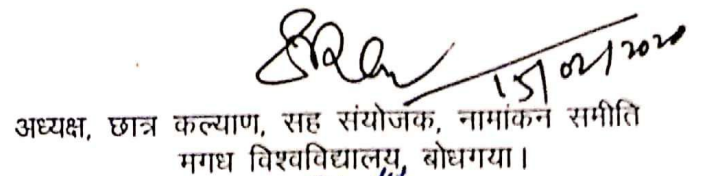 15/02/2020
अध्यक्ष, छात्र कल्याण, सह संयोजक, नामांकन समीति
मगध विश्वविद्यालय, बोधगया।